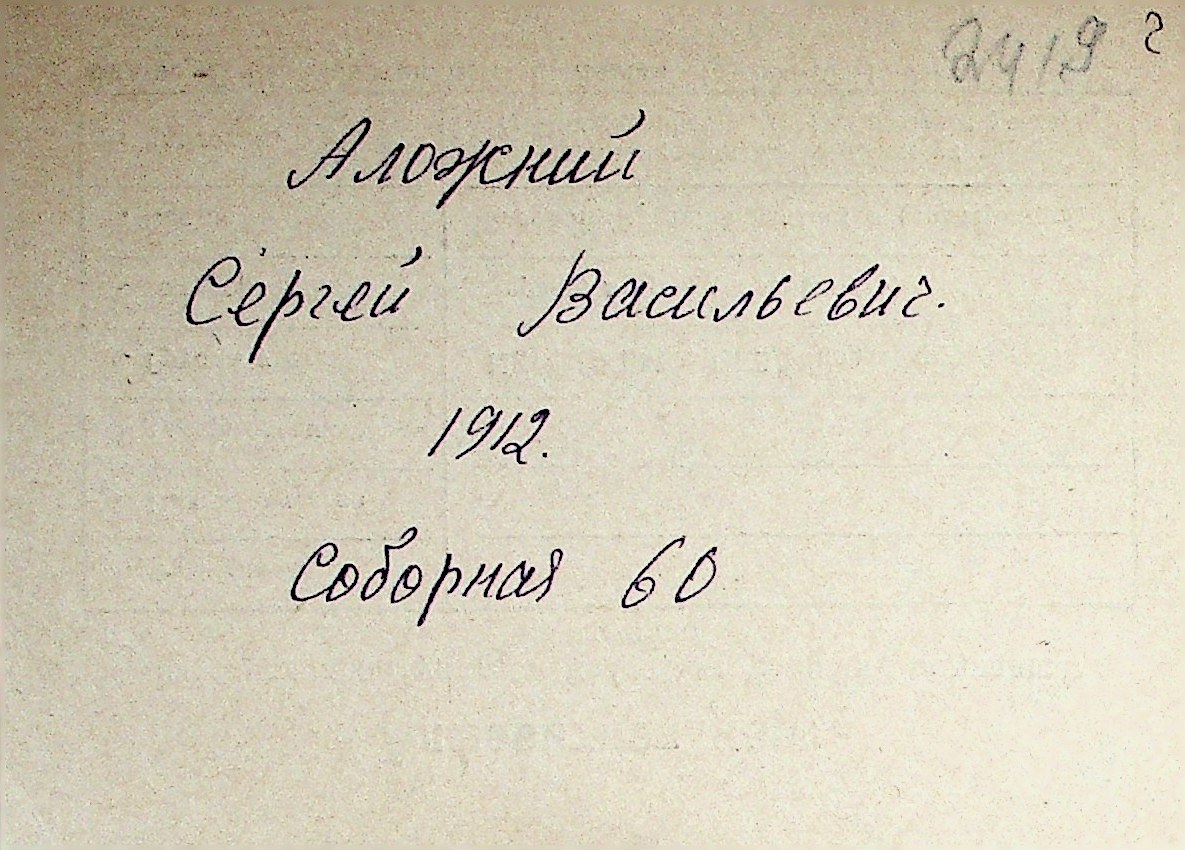 2419 2
Аложний
Сергей Васильевич.
1912.
Соборная 60